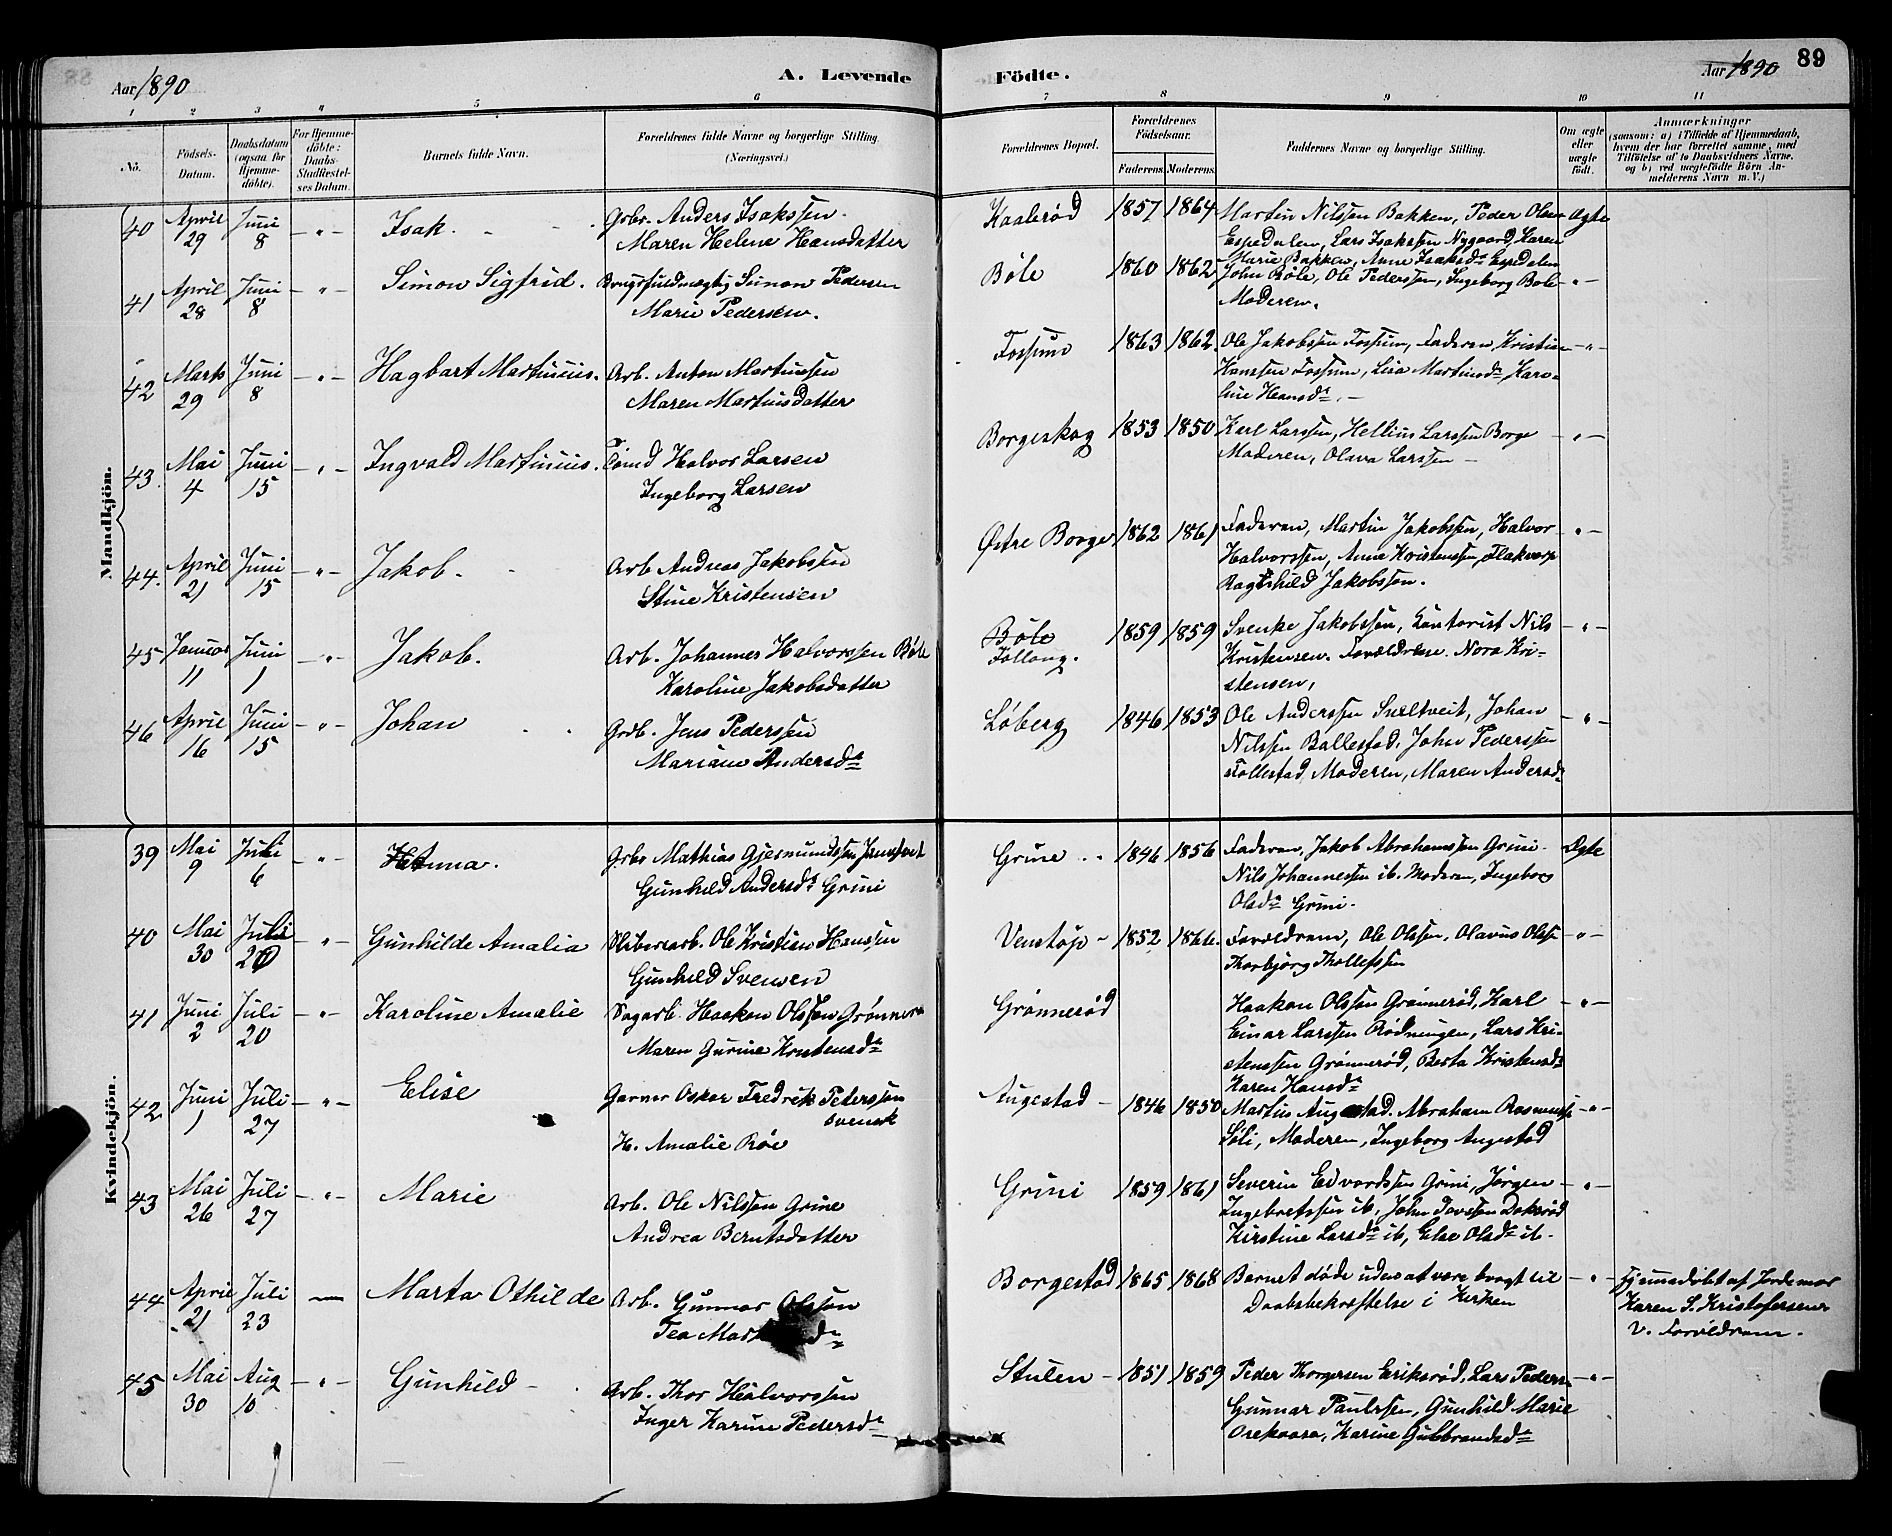 Aar 1890
A. Levende
Födte.
Aar 1890
89
1 2 3 4 5 6 7 8 9 10 11
No.
Födsels-
Datum.
Daabsdatum
(ogsaa for
Hjemme-
döbte).
For Hjemme-
döbte:
Daabs-
Stadfæstel-
ses Datum.
Barnets fulde Navn.
Forældrenes fulde Navne og borgerlige Stilling.
(Næringsvei.)
Forældrenes Bopæl.
Forældrenes
Födselsaar.
Faderens. Moderens.
Faddernes Navne og borgerlige Stilling.
Om ægte
eller
uægte
födt.
Anmærkninger
(saasom: a) i Tilfælde af Hjemmedaab,
hvem der har forrettet samme, med
Tilföielse af to Daabsvidners Navne,
og b) ved uægtefödte Börn An-
melderens Navn m. V.)
Mandkjön.
40 April 29 Juni 8 - " - Isak. Gbr. Anders Isakssen.
Maren Helene Hansdatter
Kaalerød 1857 1864 Martin Nilssen Bakken, Peder Olsen Ægte
Espedalen, Lars Isakssen Nygaard, Karen
Marie Bakken, Anne Isaksdr Espedalen
41 April 28 Juni 8 - " - Simon Sigfrid. Brugsfuldmægtig Simon Pedersen
Marie Pedersen.
Bøle 1860 1862 John Bøle, Ole Pederssen, Ingeborg Bøle - " -
Moderen.
42 Marts 29 Juni 8 - " - Hagbart Martinius. Arb. Anton Martinsen
Maren Martinsdatter
Fossum 1863 1862 Ole Jakobssen Fossum, Faderen, Kristian - " -
Hanssen Fossum, Lisa Martinsdr, Karo-
line Hansdr. -
43. Mai 4 Juni 15 - " - Ingvald Martinius. Tømd Halvor Larsen
Ingeborg Larsen
Borgeskog 1853 1850 Karl Larssen, Hellius Larssen Borge - " -
Moderen, Olava Larssen -
44. April 21 Juni 15 - " - Jakob. Arb Andreas Jakobssen
Stine Kristensen
Østre Borge 1862 1861 Faderen, Martin Jakobsen, Halvor - " -
Halvorssen, Anne Kristenssen Flakvarp
Ragnhild Jakobssen.
45 Januar 11 Juni 1 - " - Jakob. Arb. Johannes Halvorssen Bøle
Karoline Jakobsdatter
Bøle
1859 1859 Svenke Jakobssen, Kontorist Nils - " -
Kristensen. Forældrene. Nora Kri-
stensen,
46 April 16 Juni 15 - " - Johan Grdb. Jens Pederssen
Mariane Andersdr
Løberg 1846 1853 Ole Anderssen Sneltveit, Johan - " -
Nilssen Ballestad, John Pederssen
Follestad, Moderen, Maren Andersdr
Kvindekjön.
39 Mai 9 Juli 6 - " - Anna. Gbr Mathias Gjermundssen
Gunhild Andersdr Grini
Grine 1846 1856 Faderen, Jakob Abrahamssen Grini. Ægte
Nils Johannessen ib. Moderen, Ingeborg
Olsdr Grini.
40 Mai 30 Juli 20 - " - Gunhilde Amalia Sliberarb. Ole Kristian Hanssen
Gunhild Svensen
Venstøp - 1852 1866. Forældrene, Ole Olssen, Olavus Olssen - " -
Thorbjørg Thollefssen
41 Juni 2 Juli 20 - " - Karoline Amalie Sagarb. Haakon Olssen Grønnerø
Maren Gurine Kristensdr
Grønnerød Haakon Olssen Grønnerød, Karl - " -
Einar Larssen Rødningen, Lars Kri-
stenssen Grønnerød, Berta Kristensdr
Karen Hansdr
42 Juni 1 Juli 27 - " - Elise Garver Oskar Fredrik Peterssen
Svensk
H. Amalie Röe
Augestad - 1846 1850 Martin Augestad. Abraham Rasmussen - " -
Søli, Moderen, Ingeborg Augestad
43 Mai 26 Juli 27 - " - Marie Arb. Ole Nilssen Grine
Andrea Berntsdatter
Grini 1859 1861 Severin Edvardssen Grini, Jørgen - " -
Ingebretssen ib, John Tovesen Doksrød
Kirstine Larsdr ib, Else Olsdr ib.
44 April 21 Juli 23 — Marta Othilde Arb. Gunnar Olsson
Tea
Borgestad 1865 1868 Barnet døde uden at være bragt til - " - Hjemmedøbt af Jordemor
Daabsbekræftelse i Kirken Karen S. Kristofersen
v. Forældrene.
45 Mai 30 Aug 10 - " - Gunhild - Arb. Thor Halvorssen
Inger Karine Pedersdr
Stulen - 1851 1859 Peder Thorgersen Eriksrød, Lars Pederssen - " -
Gunnar Paulssen, Gunhild Marie
Orekaasa, Karine Gulbrandsdr